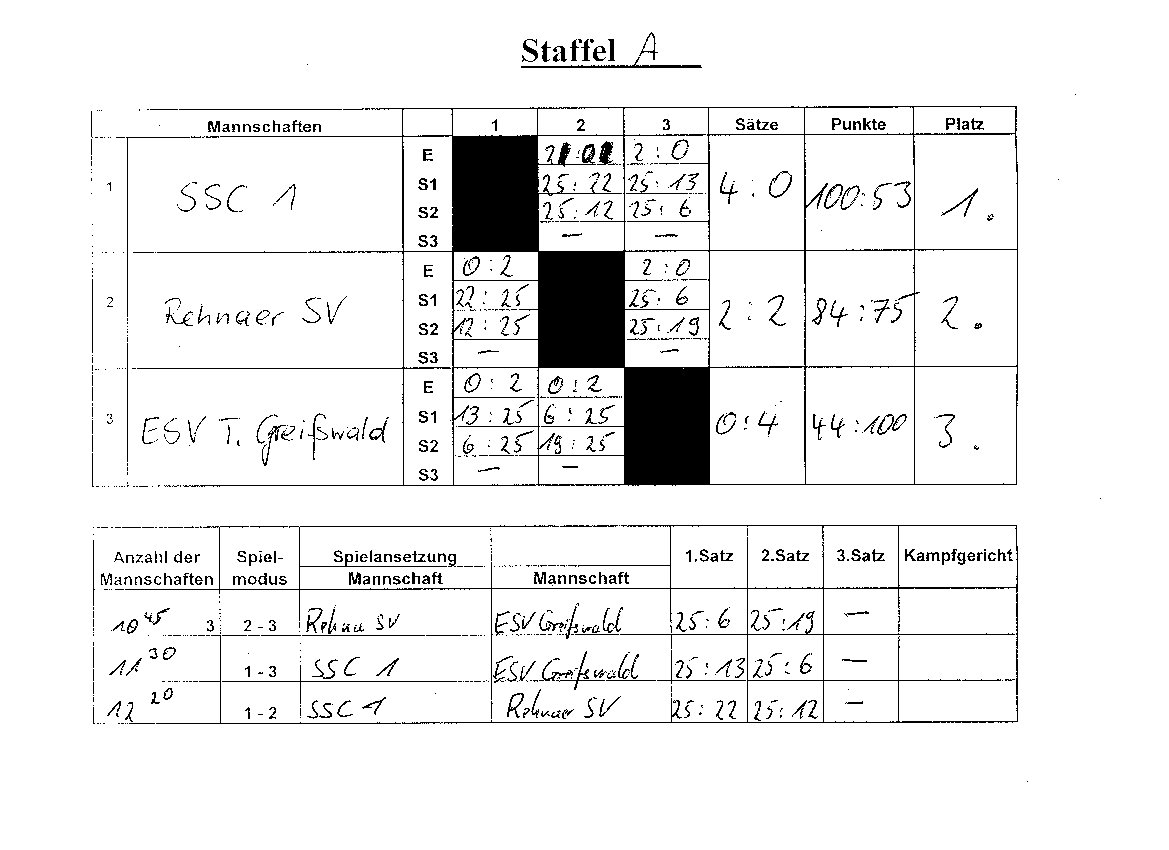 Staffel A
Mannschaften 1 2 3 Sätze Punkte Platz
E 2:0 2:0
1 SSC 1 S1 25:22 25:13 4:0 100:53 1.
S2 25:12 25:6
S3 — —
E 0:2 2:0
2 Rehnaer SV S1 22:25 25:6 2:2 84:75 2.
S2 12:25 25:19
S3 — —
E 0:2 0:2
3 ESV T. Greifswald S1 13:25 6:25 0:4 44:100 3.
S2 6:25 19:25
S3 — —
Anzahl der Spiel- Spielansetzung 1.Satz 2.Satz 3.Satz Kampfgericht
Mannschaften modus Mannschaft Mannschaft
10 45 3 2 - 3 Rehna SV ESV Greifswald 25:6 25:19 —
11 30 1 - 3 SSC 1 ESV Greifswald 25:13 25:6 —
12 20 1 - 2 SSC 1 Rehnaer SV 25:22 25:12 —